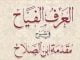 العرف الفياح
في شرح
مقدمة ابن الصلاح